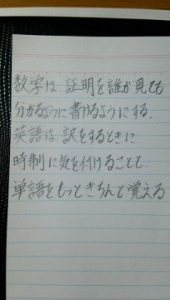 数学は、証明を誰が見ても
分かるように書けるようにする。
英語は訳をするときに
時制に気を付けることと、
単語をもっときちんと覚える